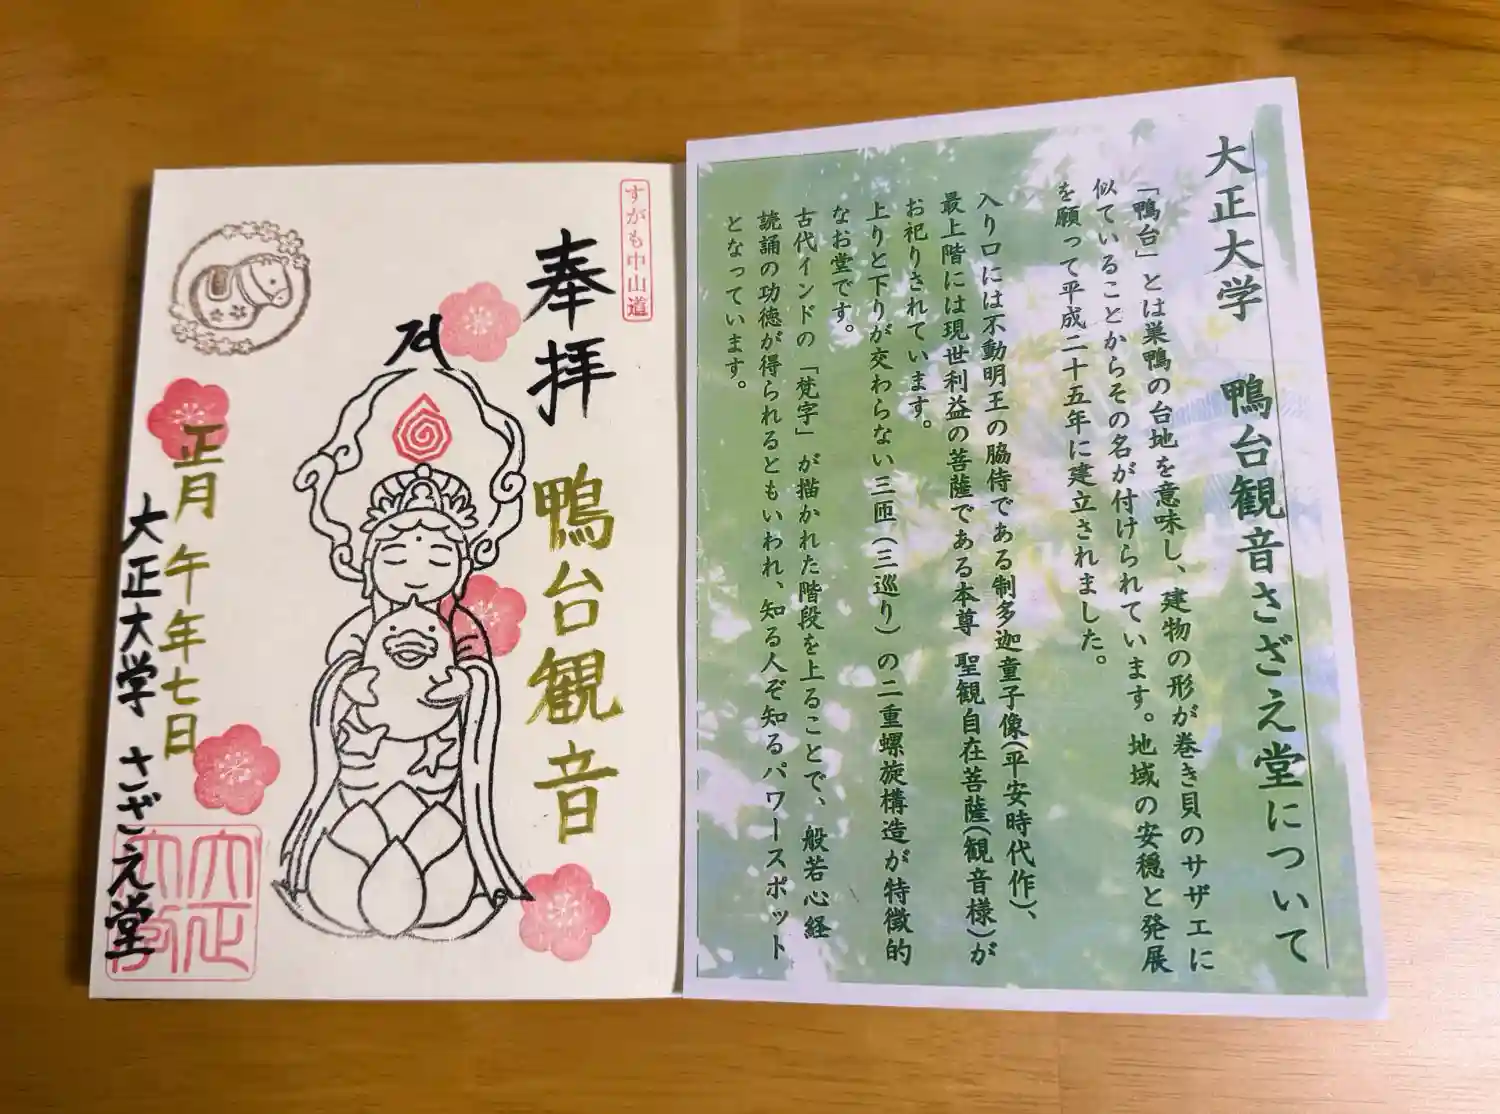 すがも中山道
奉拝
鴨台観音
正月
午年七日
大正大学 さざえ堂
大正大学
大正大学 鴨台観音さざえ堂について
「鴨台」とは巣鴨の台地を意味し、建物の形が巻き貝のサザエに
似ていることからその名が付けられています。地域の安穏と発展
を願って平成二十五年に建立されました。
入り口には不動明王の脇侍である制多迦童子像(平安時代作)、
最上階には現世利益の菩薩である本尊 聖観自在菩薩(観音様)が
お祀りされています。
上りと下りが交わらない三匝(三巡り)の二重螺旋構造が特徴的
なお堂です。
古代インドの「梵字」が描かれた階段を上ることで、般若心経
読誦の功徳が得られるともいわれ、知る人ぞ知るパワースポット
となっています。